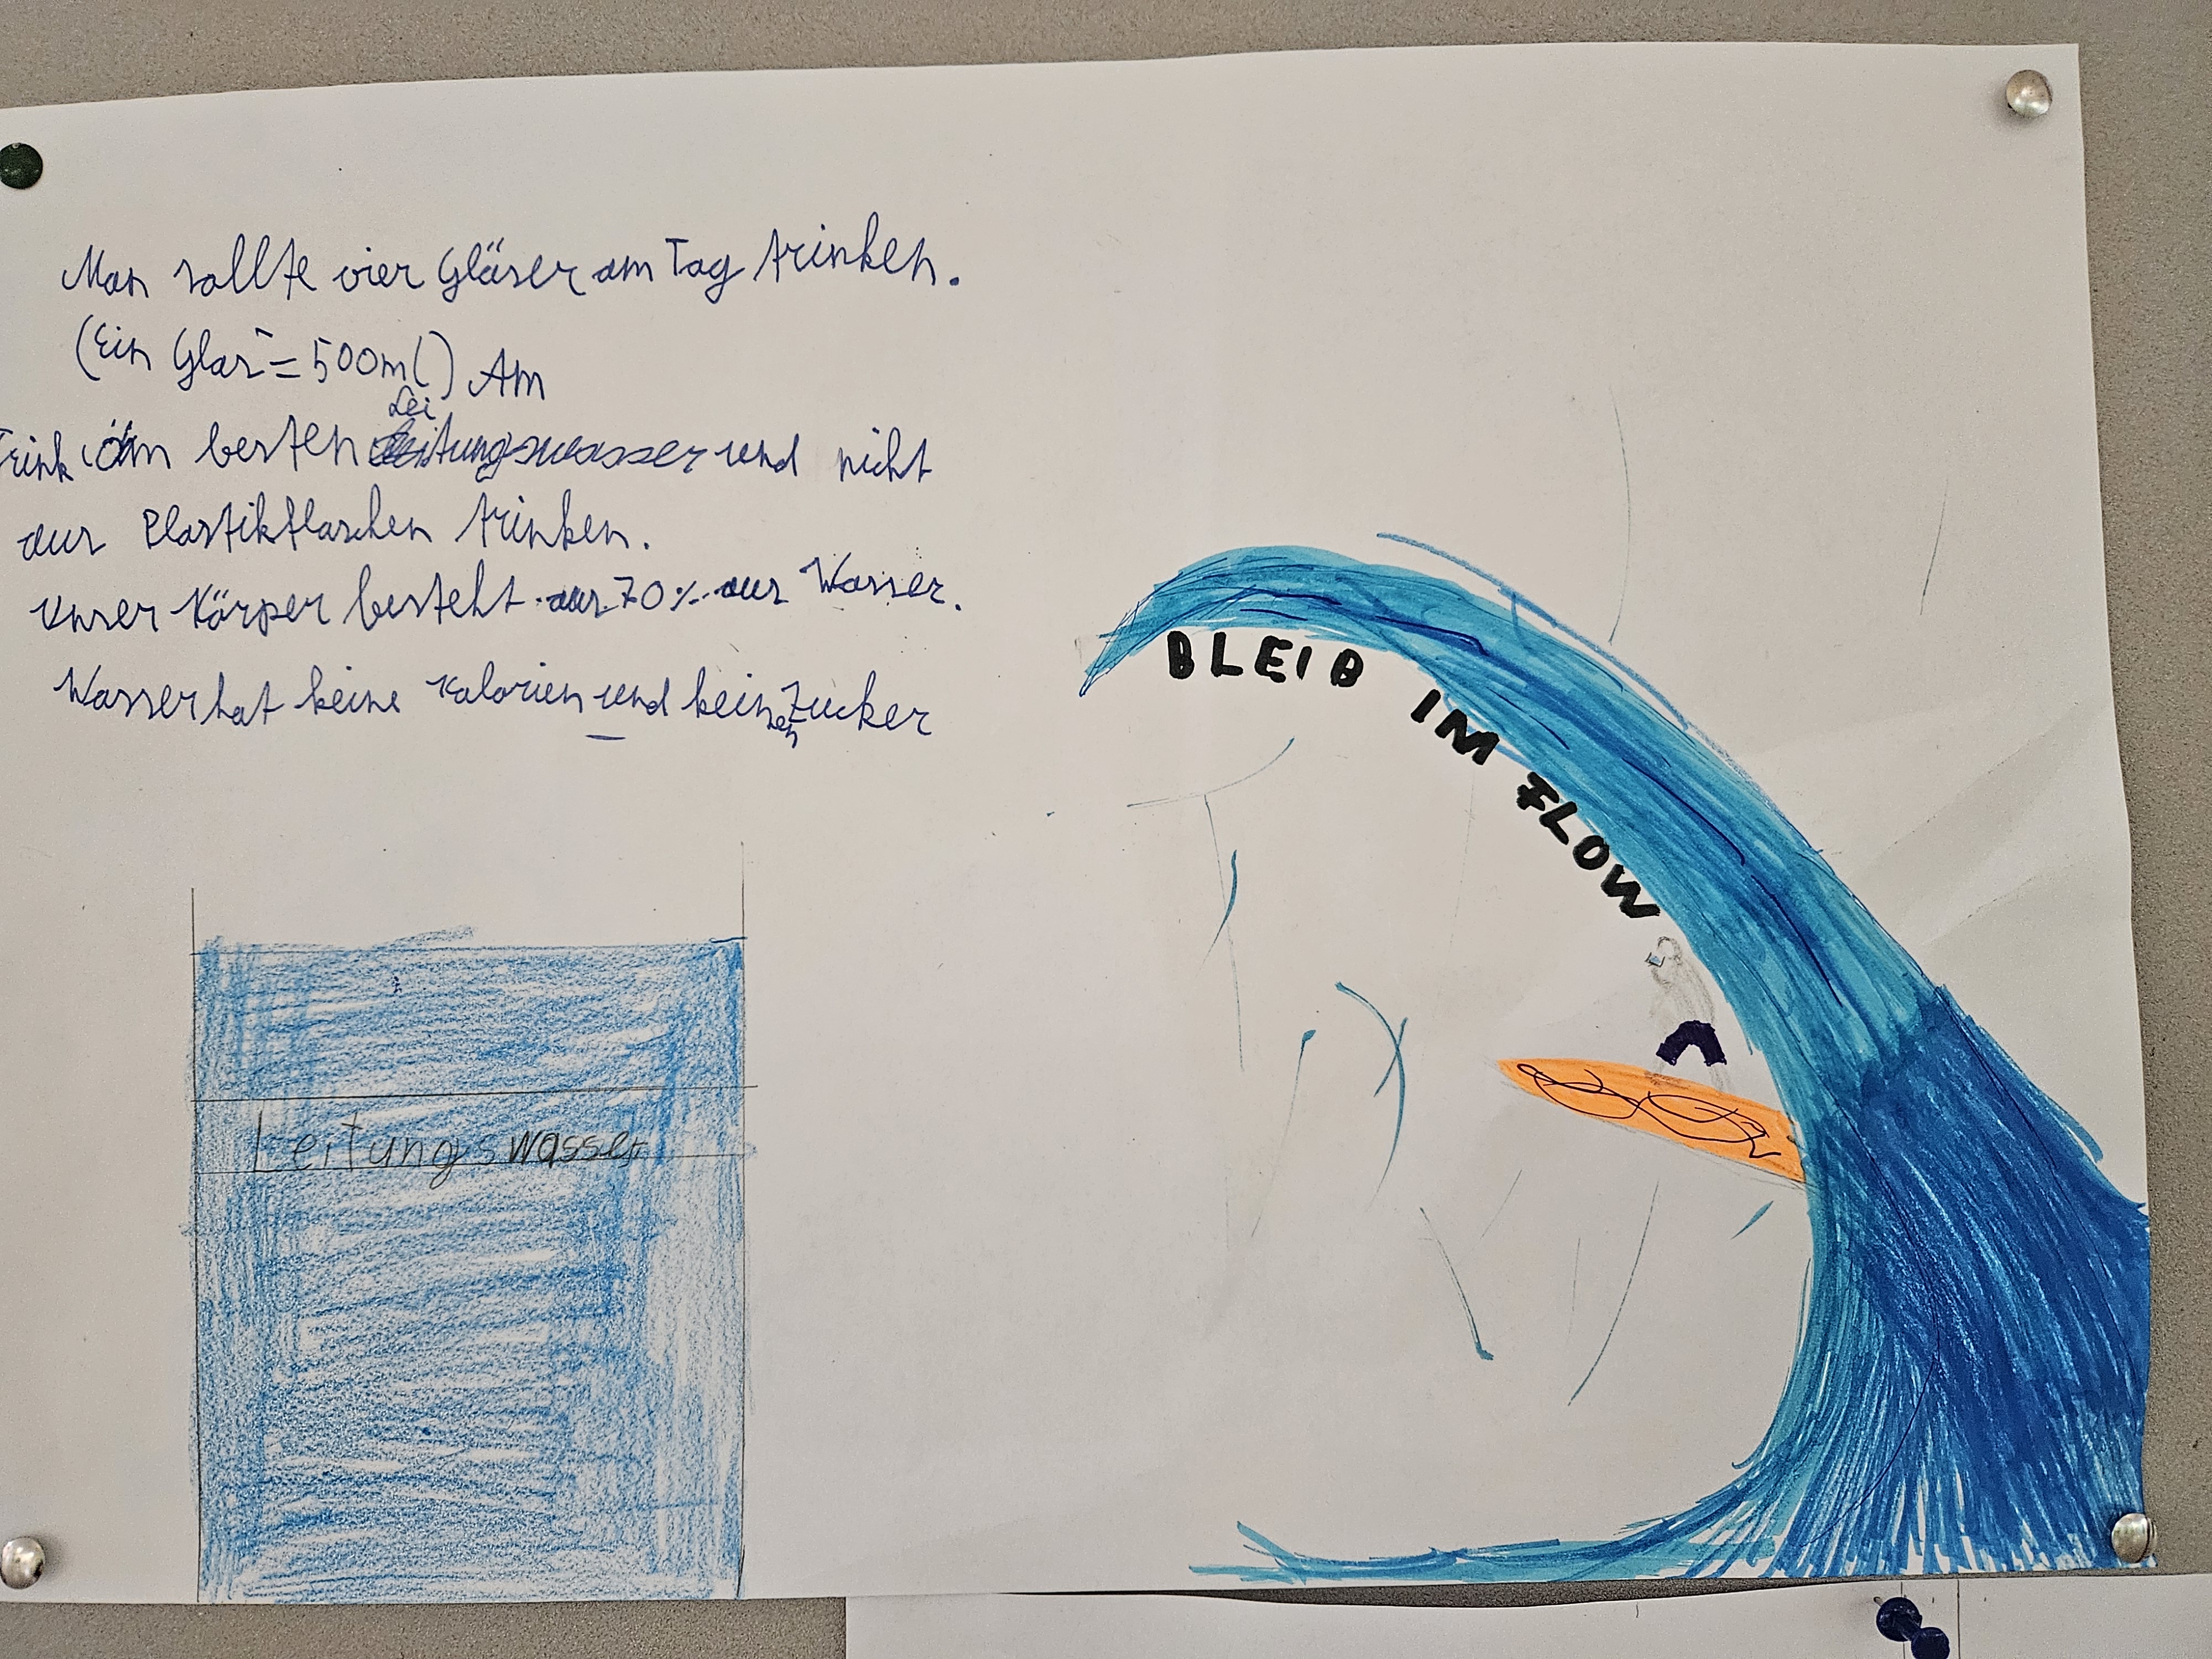 Man sollte vier Gläser am Tag trinken.
(Ein Glas = 500ml) Am
Trink am besten Leitungswasser und nicht
aus Plastikflaschen trinken.
Unser Körper besteht aus 70% aus Wasser.
Wasser hat keine Kalorien und keinen Zucker
Leitungswasser
BLEIB IM FLOW